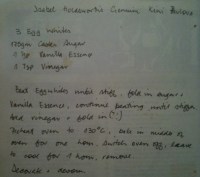 3 Egg whites
Caster Sugar
1 tsp Vanilla Essence
1 tsp Vinegar
Beat Egg whites until stiff, fold in sugar +
Vanilla Essence, continue beating until stiff
Add vinegar + fold in
Preheat oven to 130°C, bake in middle of
oven for one hour. Switch oven off, leave
to cool for 1 hour, remove
Decorate +